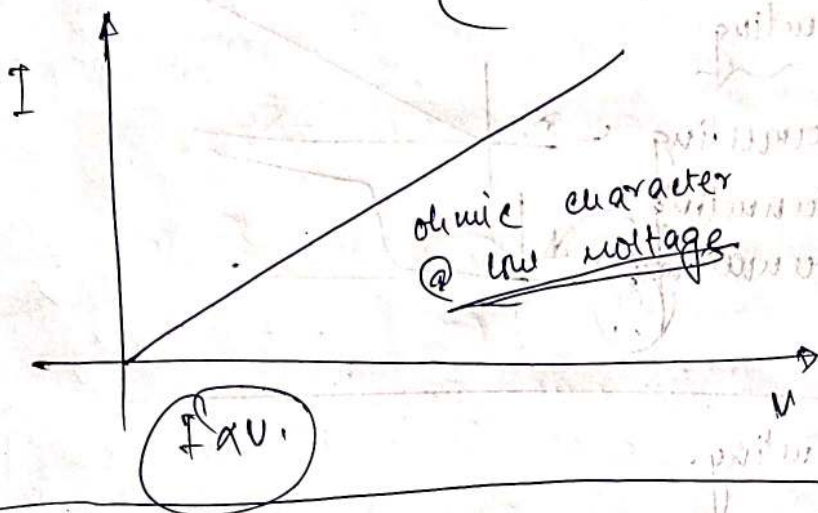 I
ohmic character
@ low voltage
V
I α V.